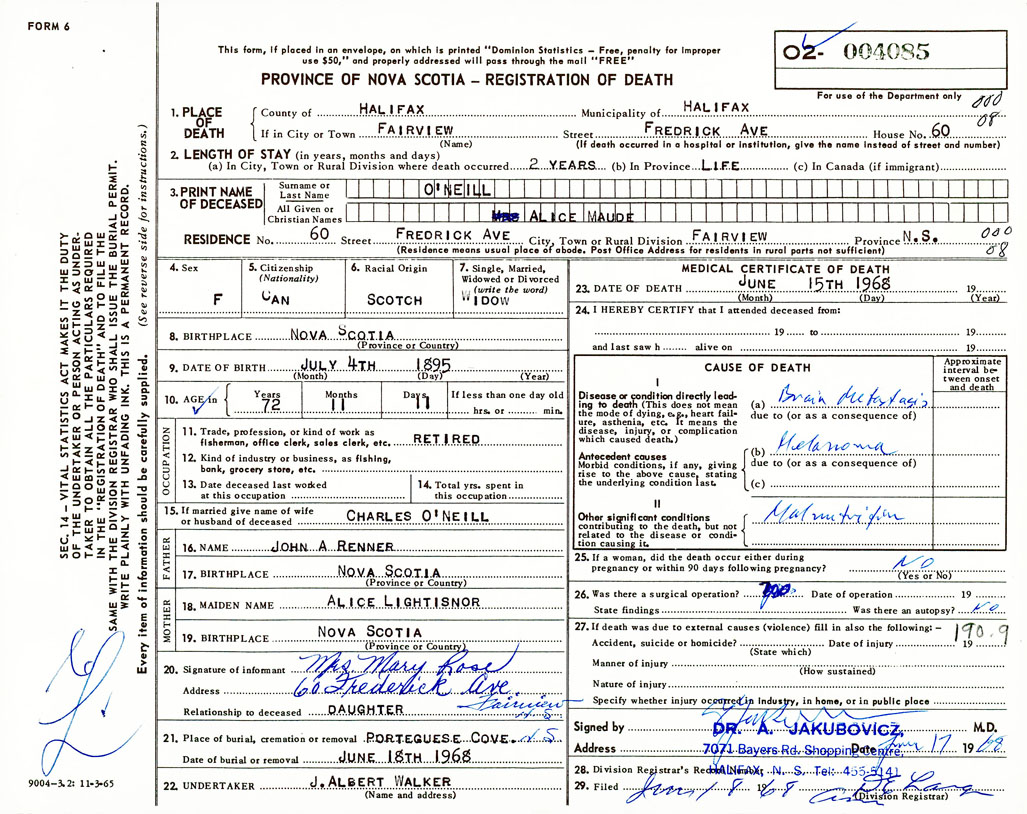 FORM 6
This form, if placed in an envelope, on which is printed "Dominion Statistics – Free, penalty for improper
use $50," and properly addressed will pass through the mail "FREE"
PROVINCE OF NOVA SCOTIA – REGISTRATION OF DEATH
02- 004085
For use of the Department only
000
08
1. PLACE OF DEATH
County of HALIFAX Municipality of HALIFAX
If in City or Town FAIRVIEW Street FREDRICK AVE House No. 60
(Name) (If death occurred in a hospital or institution, give the name instead of street and number)
2. LENGTH OF STAY (in years, months and days)
(a) In City, Town or Rural Division where death occurred 2 YEARS (b) In Province LIFE (c) In Canada (if immigrant)
3. PRINT NAME OF DECEASED
Surname or Last Name O'NEILL
All Given or Christian Names ALICE MAUDE
RESIDENCE No. 60 Street FREDRICK AVE City, Town or Rural Division FAIRVIEW Province N.S.
(Residence means usual place of abode. Post Office Address for residents in rural parts not sufficient)
000
08
4. Sex
F
5. Citizenship
(Nationality)
CAN
6. Racial Origin
SCOTCH
7. Single, Married,
Widowed or Divorced
(write the word)
WIDOW
8. BIRTHPLACE NOVA SCOTIA
(Province or Country)
9. DATE OF BIRTH JULY 4TH 1895
(Month) (Day) (Year)
10. AGE in
Years 72
Months 11
Days 11
If less than one day old
hrs. or min.
OCCUPATION
11. Trade, profession, or kind of work as
fisherman, office clerk, sales clerk, etc. RETIRED
12. Kind of industry or business, as fishing,
bank, grocery store, etc.
13. Date deceased last worked
at this occupation
14. Total yrs. spent in
this occupation
15. If married give name of wife
or husband of deceased CHARLES O'NEILL
FATHER
16. NAME JOHN A RENNER
17. BIRTHPLACE NOVA SCOTIA
(Province or Country)
MOTHER
18. MAIDEN NAME ALICE LIGHTISNOR
19. BIRTHPLACE NOVA SCOTIA
(Province or Country)
20. Signature of informant Mrs. Mary Rose
Address 60 Frederick Ave.
Fairview
N.S
Relationship to deceased DAUGHTER
21. Place of burial, cremation or removal PORTEGUESE COVE. N.S.
Date of burial or removal JUNE 18TH 1968
22. UNDERTAKER J. ALBERT WALKER
(Name and address)
MEDICAL CERTIFICATE OF DEATH
23. DATE OF DEATH JUNE 15TH 1968 19
(Month) (Day) (Year)
24. I HEREBY CERTIFY that I attended deceased from:
19 to 19
and last saw h alive on 19
CAUSE OF DEATH
Approximate
interval be-
tween onset
and death
I
Disease or condition directly lead-
ing to death (This does not mean
the mode of dying, e.g., heart fail-
ure, asthenia, etc. It means the
disease, injury, or complication
which caused death.)
(a) Brain Metastasis
due to (or as a consequence of)
Antecedent causes
Morbid conditions, if any, giving
rise to the above cause, stating
the underlying condition last.
(b) Melanoma
due to (or as a consequence of)
(c)
II
Other significant conditions
contributing to the death, but not
related to the disease or condi-
tion causing it.
Malnutrition
25. If a woman, did the death occur either during
pregnancy or within 90 days following pregnancy? NO
(Yes or No)
26. Was there a surgical operation? Date of operation 19
State findings Was there an autopsy? No
27. If death was due to external causes (violence) fill in also the following: –
190.9
Accident, suicide or homicide? Date of injury 19
(State which)
Manner of injury
(How sustained)
Nature of injury
Specify whether injury occurred in industry, in home, or in public place
Signed by DR. A. JAKUBOVICZ, M.D.
Address 7071 Bayers Rd. Shopping Centre, Date June 17 1968
HALIFAX, N. S. Tel: 455-5141
28. Division Registrar's Record
29. Filed June 18 1968
(Division Registrar)
SEC. 14 – VITAL STATISTICS ACT MAKES IT THE DUTY
OF THE UNDERTAKER OR PERSON ACTING AS UNDER-
TAKER TO OBTAIN ALL THE PARTICULARS REQUIRED
IN THE "REGISTRATION OF DEATH" AND TO FILE THE
SAME WITH THE DIVISION REGISTRAR WHO SHALL ISSUE THE BURIAL PERMIT.
WRITE PLAINLY WITH UNFADING INK. THIS IS A PERMANENT RECORD.
Every item of information should be carefully supplied. (See reverse side for instructions.)
9004-3.2: 11-3-65